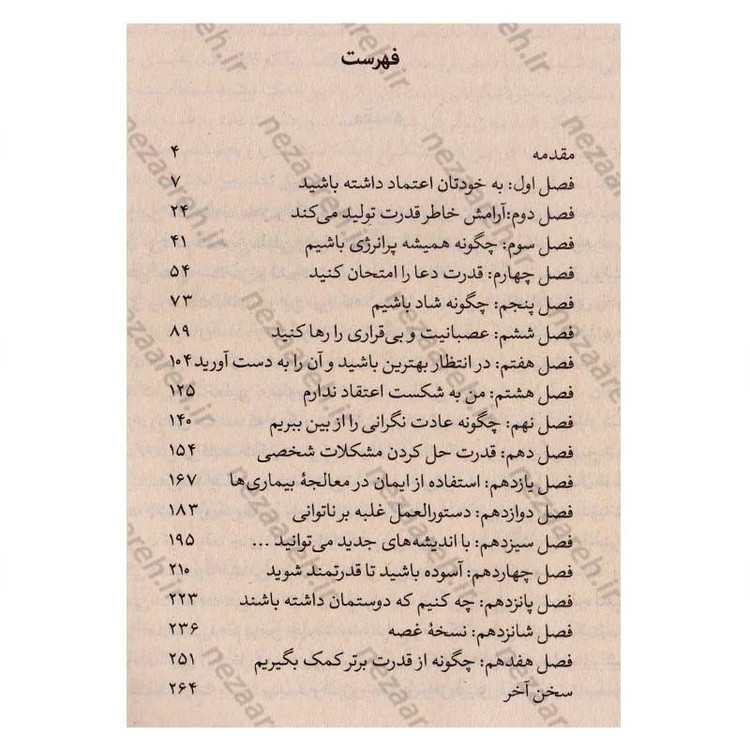 فهرست
مقدمه ۴
فصل اول: به خودتان اعتماد داشته باشید ۷
فصل دوم:آرامش خاطر قدرت تولید می‌کند ۲۴
فصل سوم: چگونه همیشه پرانرژی باشیم ۴۱
فصل چهارم: قدرت دعا را امتحان کنید ۵۴
فصل پنجم: چگونه شاد باشیم ۷۳
فصل ششم: عصبانیت و بی‌قراری را رها کنید ۸۹
فصل هفتم: در انتظار بهترین باشید و آن را به دست آورید ۱۰۴
فصل هشتم: من به شکست اعتقاد ندارم ۱۲۵
فصل نهم: چگونه عادت نگرانی را از بین ببریم ۱۴۰
فصل دهم: قدرت حل کردن مشکلات شخصی ۱۵۴
فصل یازدهم: استفاده از ایمان در معالجهٔ بیماری‌ها ۱۶۷
فصل دوازدهم: دستورالعمل غلبه بر ناتوانی ۱۸۳
فصل سیزدهم: با اندیشه‌های جدید می‌توانید ... ۱۹۵
فصل چهاردهم: آسوده باشید تا قدرتمند شوید ۲۱۰
فصل پانزدهم: چه کنیم که دوستمان داشته باشند ۲۲۳
فصل شانزدهم: نسخهٔ غصه ۲۳۶
فصل هفدهم: چگونه از قدرت برتر کمک بگیریم ۲۵۱
سخن آخر ۲۶۴
nezaareh.ir